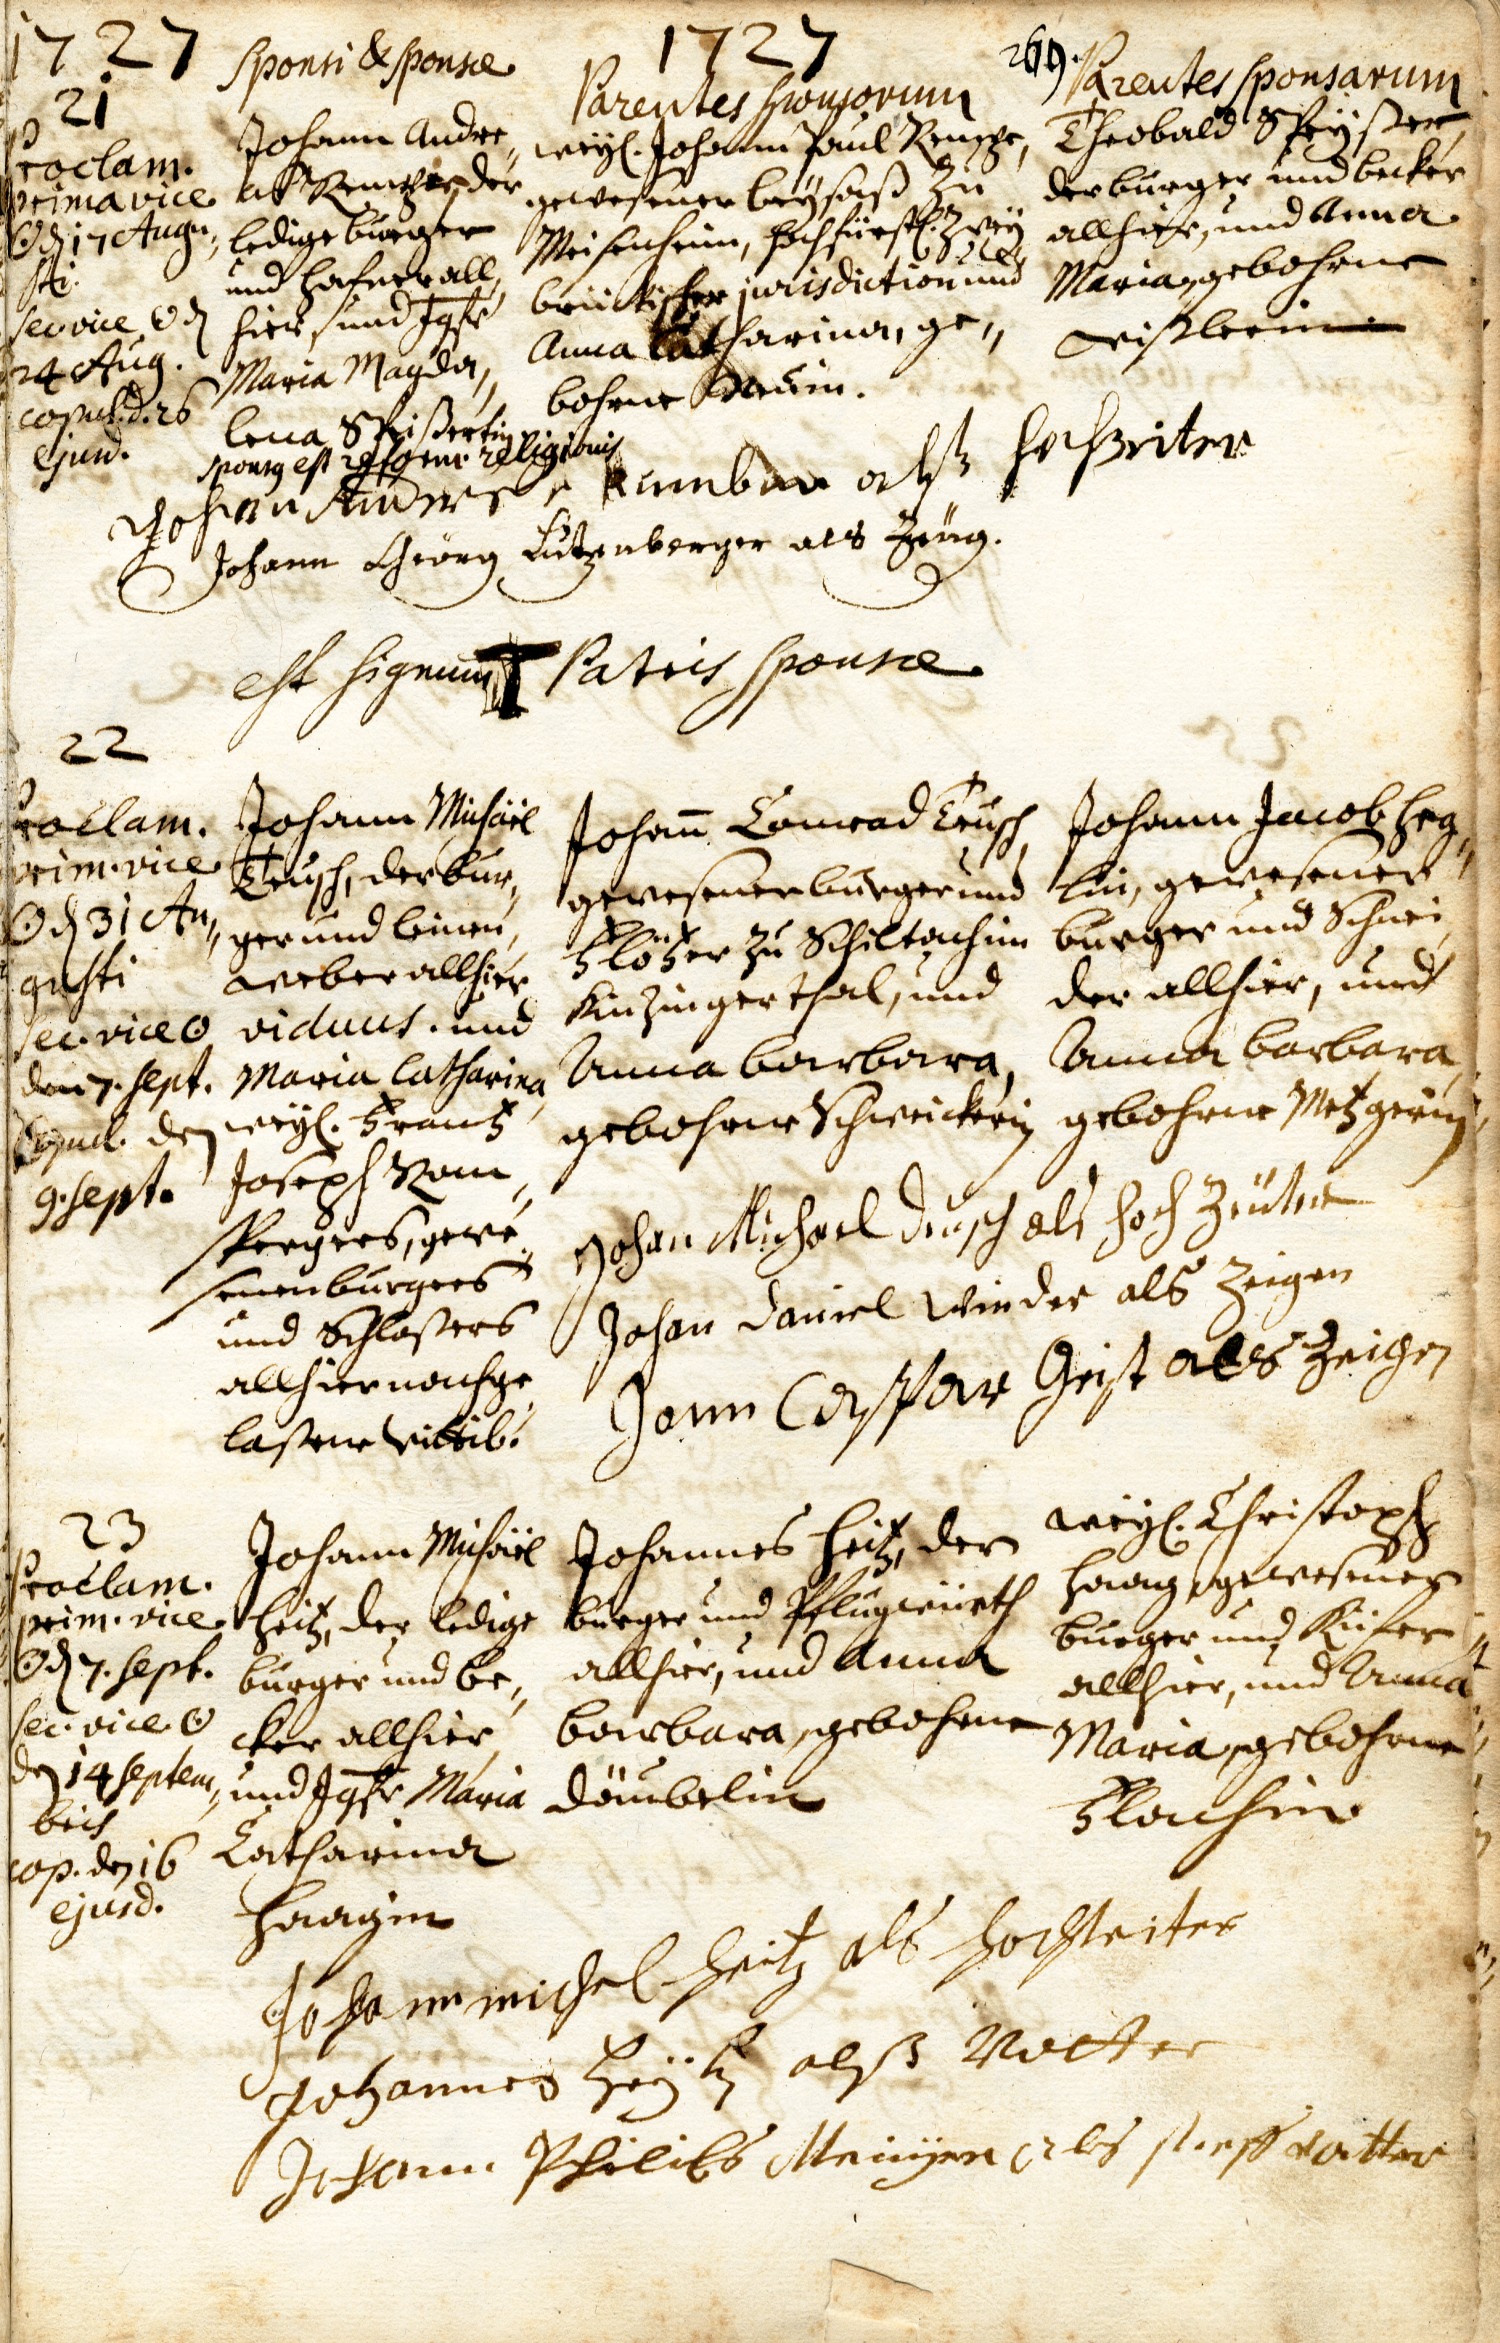 1727 Sponsi & Sponsae 1727 269.
Parentes Sponsorum Parentes Sponsarum
21
Proclam.
prima vice
☉ d 17 Augu„
sti.
sec. vice ☉ d
24 Aug.
copul. d. 26
ejusd.
Johann Andre„
as der
ledige burger
und hafner all„
hier, und Jgfr
Maria Magda„
lena Speißertin
sponsa est reform. religionis
weyl. Johann Paul
gewesener beysaß zu
Meisenheim, hochfürstl. Zwey
brückischer jurisdiction und
Anna Catharina, ge„
bohrne
Theobald Speyßer,
der burger und becker
allhier, und Anna
Maria, gebohrne
Johan Andres alß hochzeiter
Johann Georg Lützenberger als Zeüg.
est signum T Patris sponsae
22
Proclam.
prim. vice
☉ d 31 Au„
gusti
sec. vice ☉
den 7. Sept.
Copul. den
9. Sept.
Johann Michäel
Teusch, der bur„
ger und leinen„
weber allhier
viduus. und
Maria Catharina,
weyl. Frantz
Joseph Rom„
spergers, gewe„
senen burgers
und Schloßers
allhier nachge„
laßene Wittib.
Johann Conrad Teusch,
gewesener burger und
Flötzer zu Schiltach im
Kinzinger thal, und
Anna barbara,
gebohrne Schweickerin
Johann Jacob Heg„
lin, gewesener
burger und Schnei„
der allhier, und
Anna barbara,
gebohrne Metzgerin
Johan Michael Deusch als hoch Zeüter
Johan Daniel Winder als Zeigen
Joann Caspar Geist als Zeigen
23
Proclam.
prim. vice
☉ d 7. Sept.
sec. vice ☉
den 14 Septem„
bris
cop. den 16
ejusd.
Johann Michäel
Heitz, der ledige
burger und be„
cker allhier,
und Jgfr Maria
Catharina
Haagin
Johannes Heitz, der
burger und Pflugwürth
allhier, und Anna
barbara, gebohrne
Däubelin
weyl. Christoph
Haag, gewesener
burger und Kiefer
allhier, und Anna
Maria, gebohrne
Flachin
Johann michel Heitz als hochzeiter
Johannes Heytz alß Vatter
Johann Philibs Meinger als steffvatter